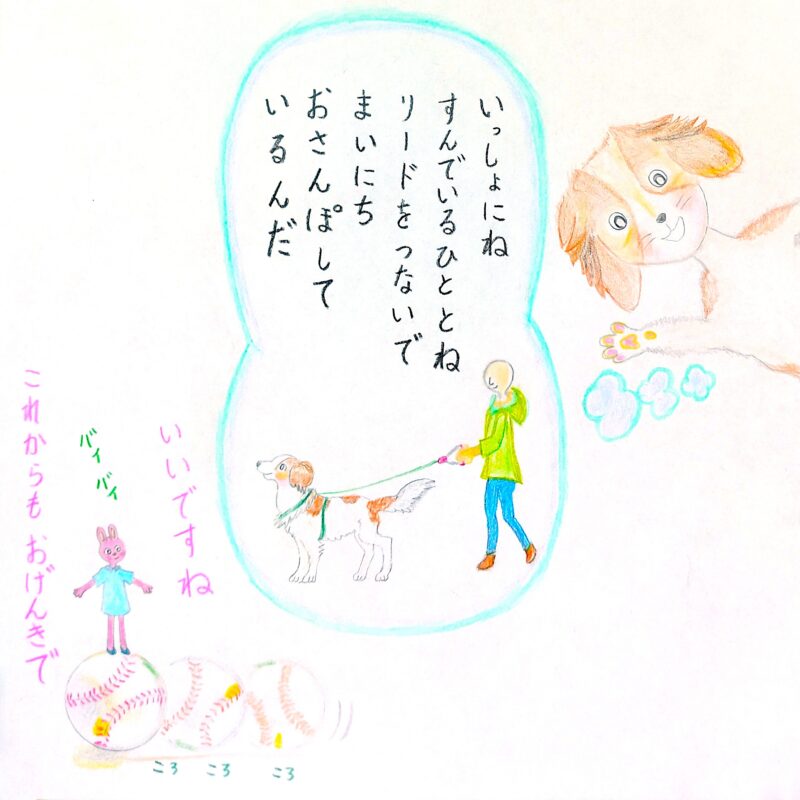 いっしょにね
すんでいるひととね
リードをつないで
まいにち
おさんぽして
いるんだ
いいですね
バイバイ
これからも おげんきで
ころ ころ ころ